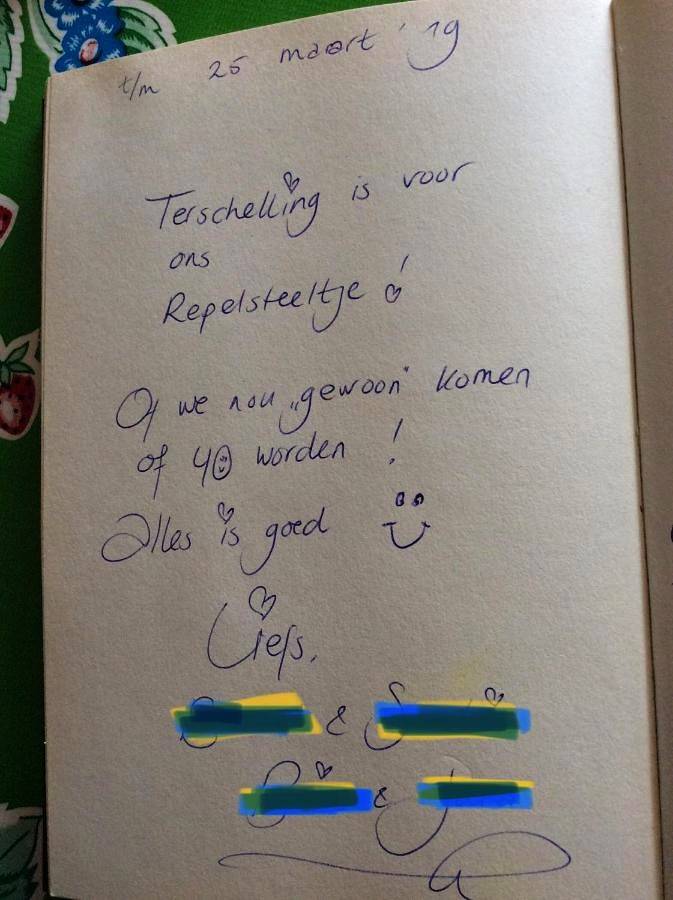 t/m 25 maart '19
Terschelling is voor
ons
Repelsteeltje!
Of we nou „gewoon" komen
of 40 worden!
Alles is goed
Liefs,
&
&